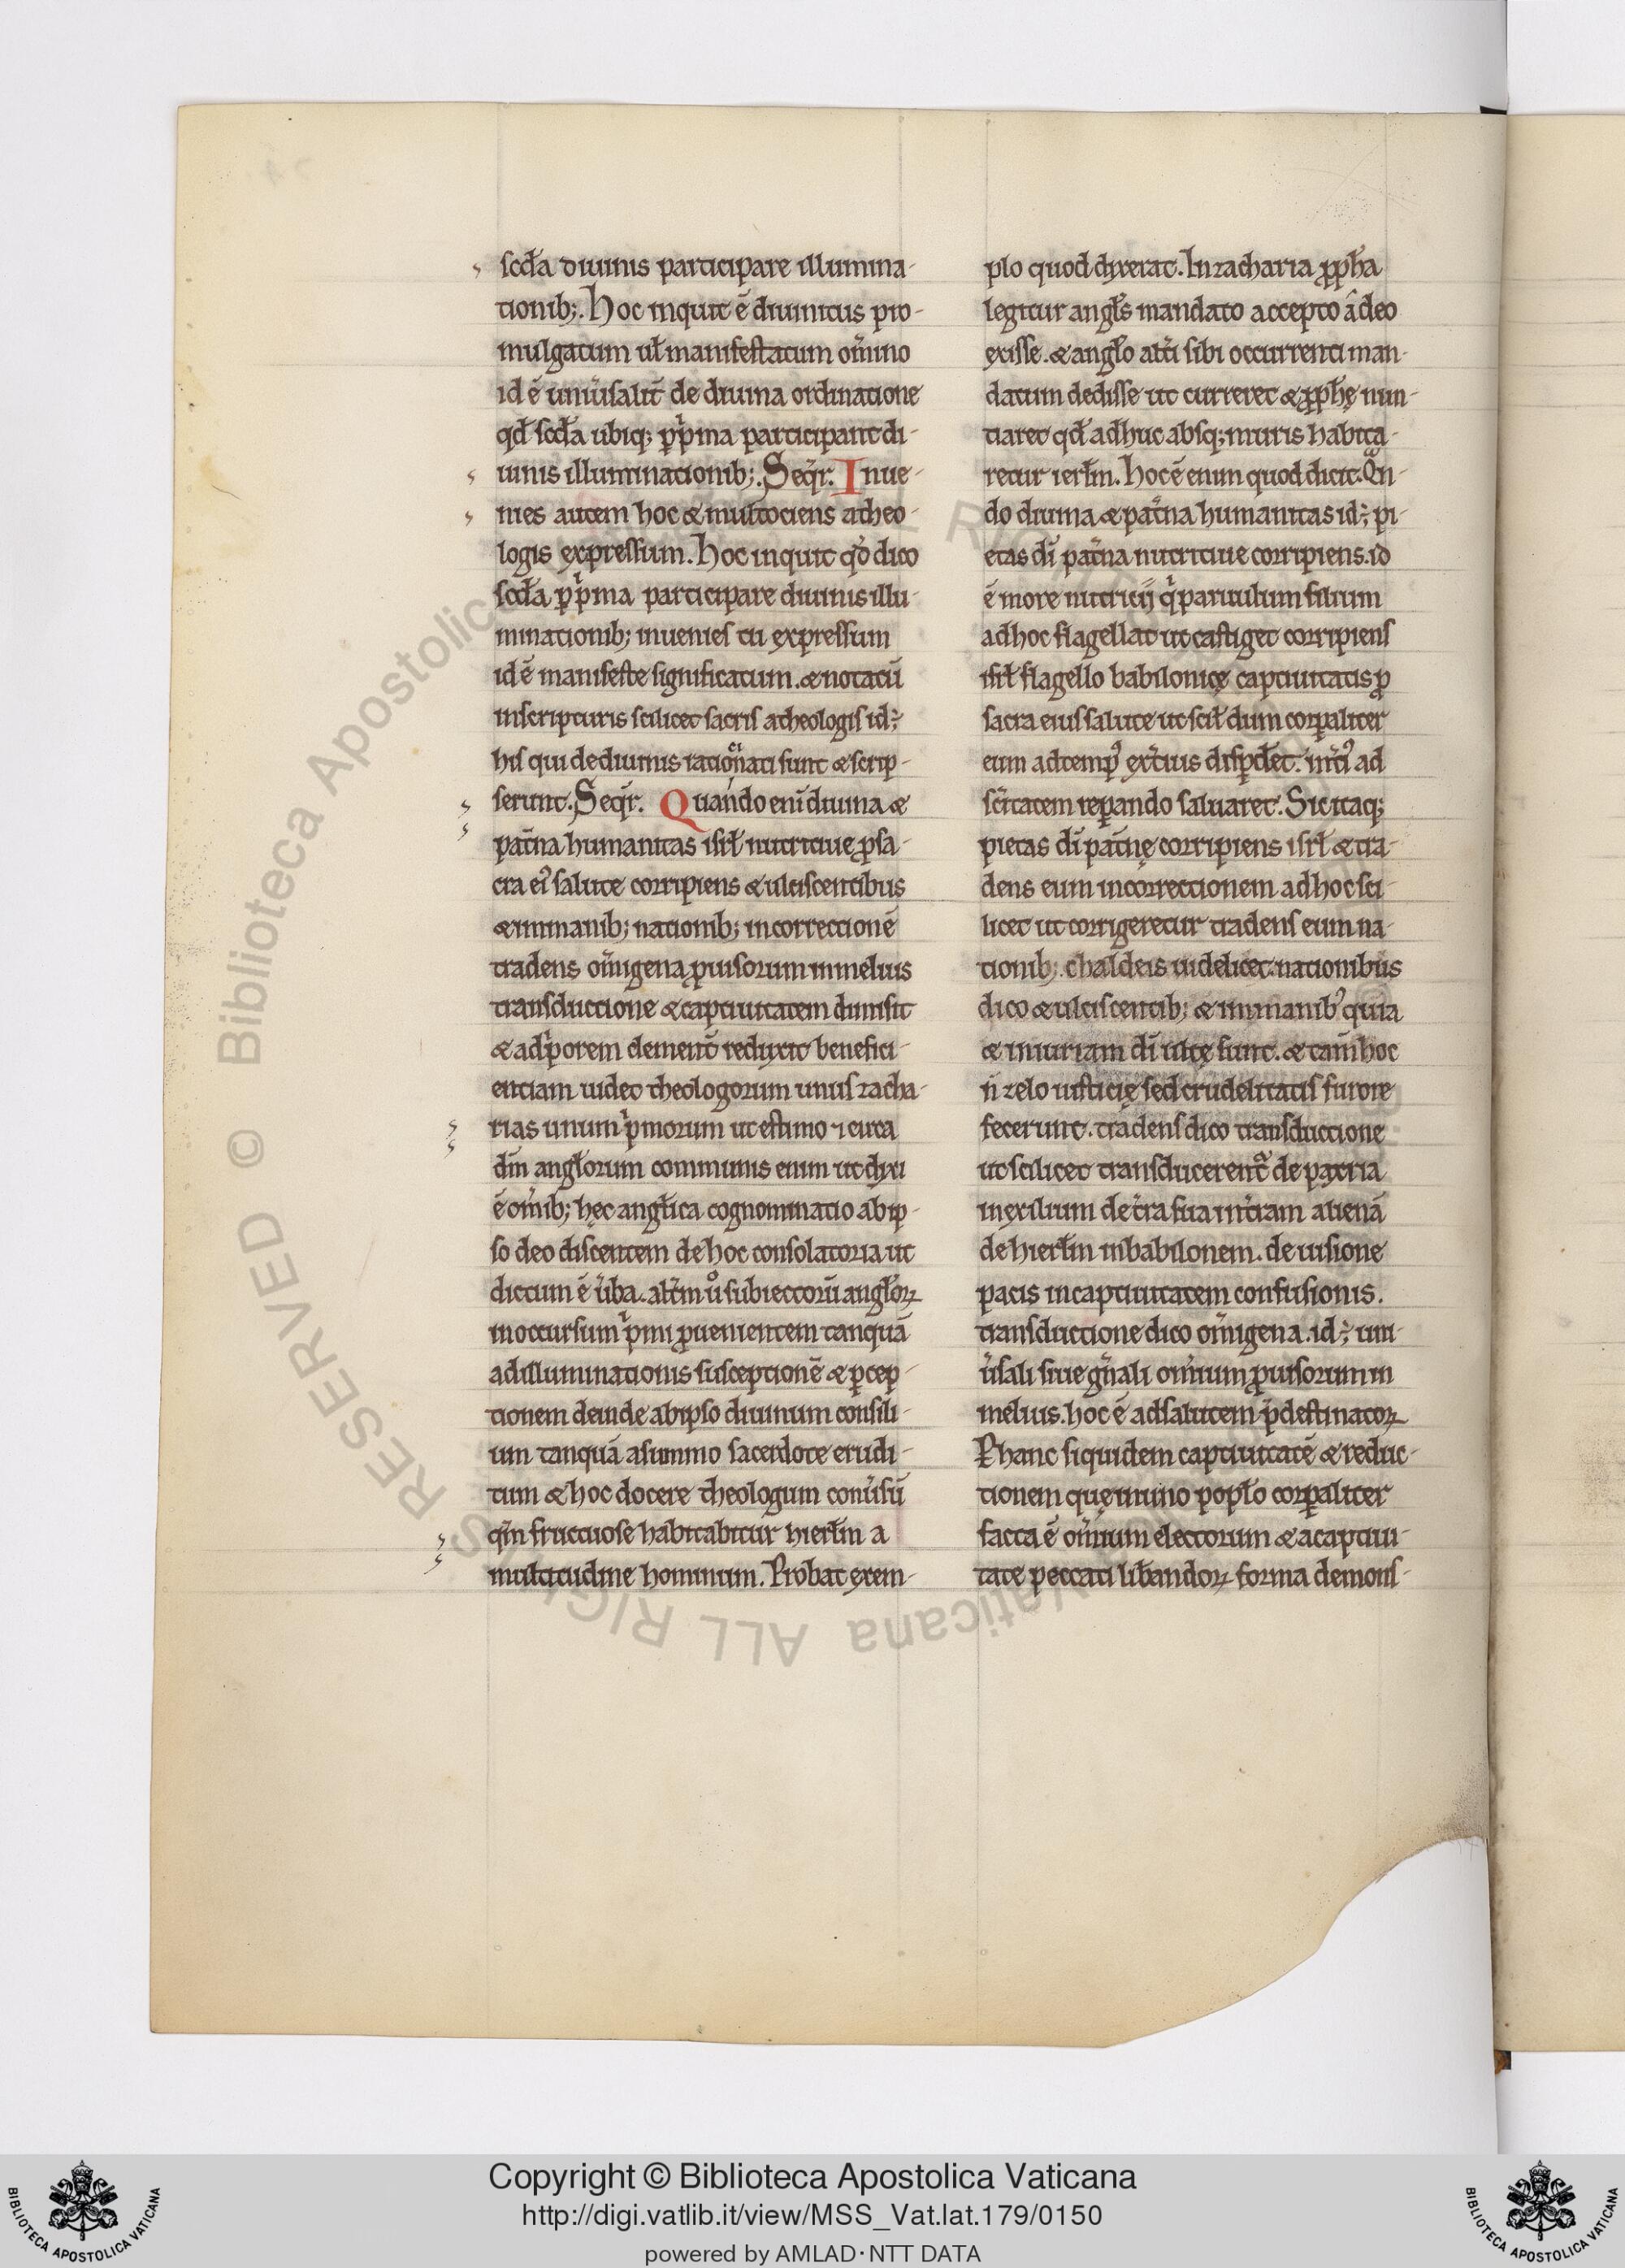 scd̄a diuinis participare illumina-
tionib;. Hoc inquit ē diuinitus pro-
mulgatum ul̄ manifestatum om̄ino
id ē uniu̓salit̄ de diuina ordinatione
qd̄ scd̄a ubiq; p̱ pͥma participant di-
uinis illuminationib;. Seqr̄. Inue-
nies autem hoc & multociens atheo-
logis expressum. Hoc inquit qd̓ dico
scd̄a p̱ pͥma participare diuinis illu-
minationib; inuenies tu expressum
id ē manifeste significatum. & notatū
inscripturis scilicet sacris atheologis id;̄
his qui dediuinis rationati sunt & scrip-
serunt. Seqr̄. Quando eni̅ diuina &
pat̄na humanitas isrl̄ nutritiue ꝓsa-
cra ei᷒ salute corripiens & ulciscentibus
& inmanib; nationib; incorrectionē
tradens om̄igena ꝓuisorum inmelius
transductione & captiuitatem dimisit
& adpͥorem clement̄ reduxit benefici-
entiam uidet theologorum unus zacha-
rias unum pͥmorum ut estimo ⁊ circa
dm̄ angl̄orum communis enim ut dixi
ē om̄ib; hęc angl̄ica cognominatio abip-
so deo discentem de hoc consolatoria ut
dictum ē uͥba. alt̄m uͦ subiectorū angl̄oꝝ
inoccursum pͥmi ꝓuenientem tanquā
adilluminationis susceptionē & ꝑcep-
tionem deinde abipso diuinum consili-
um tanquā asummo sacerdote erudi-
tum & hoc docere theologum conuͥsū
qm̄ fructuose habitabitur hierl̄m a
multitudine hominum. Probat exem-
plo quod dixerat. In zacharia ꝓph̄a
legitur angl̄s mandato accepto a deo
exisse. & angl̄o alt̄i sibi occurrenti man-
datum dedisse ut curreret & ꝓph̄ę nun-
tiaret qd̄ adhuc absq; muris habita-
retur ierl̄m. Hoc ē enim quod dicit. Qn̄-
do diuina & pat̄na humanitas id;̄ pi-
etas dī pat̄na nutritiue corripiens. id
ē more nutricij qͥ paruulum filium
adhoc flagellat ut castiget corripiens
isrl̄ flagello babilonicę captiuitatis ꝓ
sacra eius salute ut scil̄ dum corꝑaliter
eum adtemp᷒ ext̄ius disꝑdet. int̄i᷒ ad
sc̄itatem reꝑando saluaret. Sic itaq;
pietas dī pat̄nę corripiens isrl̄ & tra-
dens eum incorrectionem adhoc sci-
licet ut corrigeretur tradens eum na-
tionib;. chaldeis uidelicet. nationibus
dico & ulciscentib; & inmanib᷒ quia
& iniuriam dī ultę sunt. & tam̄ hoc
n̄ zelo iusticię sed crudelitatis furore
fecerunt. tradens dico transductione
ut scilicet transducerent᷑ de patria
in exilium de t̄ra sua int̄ram alienā
de hierl̄m inbabilonem. de uisione
pacis incaptiuitatem confusionis.
transductione dico om̄igena. id;̄ uni-
uͥsali siue gn̄ali om̄ium ꝓuisorum in
melius. hoc ē adsalutem p̄destinatoꝝ
P hanc siquidem captiuitatē & reduc-
tionem quę inuno popl̄o corꝑaliter
facta ē om̄ium electorum & acaptiui-
tate peccati lib̄andoꝝ forma demons-
Copyright © Biblioteca Apostolica Vaticana
http://digi.vatlib.it/view/MSS_Vat.lat.179/0150
powered by AMLAD·NTT DATA
BIBLIOTECA APOSTOLICA VATICANA
BIBLIOTECA APOSTOLICA VATICANA
© Biblioteca Apostolica Vaticana ALL RIGHTS RESERVED